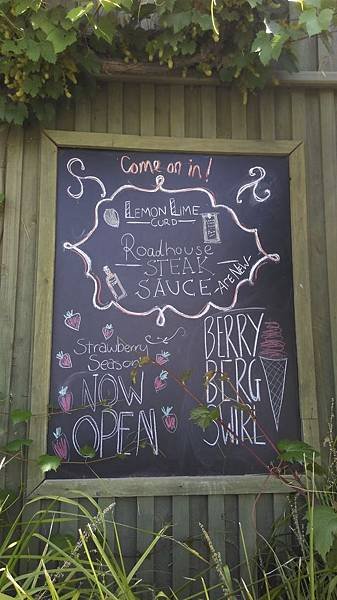 Come on in!
LEMON LIME
CURD
Roadhouse
STEAK
SAUCE
ARE NEW
Strawberry
Season
NOW
OPEN
BERRY
BERG
SWIRL